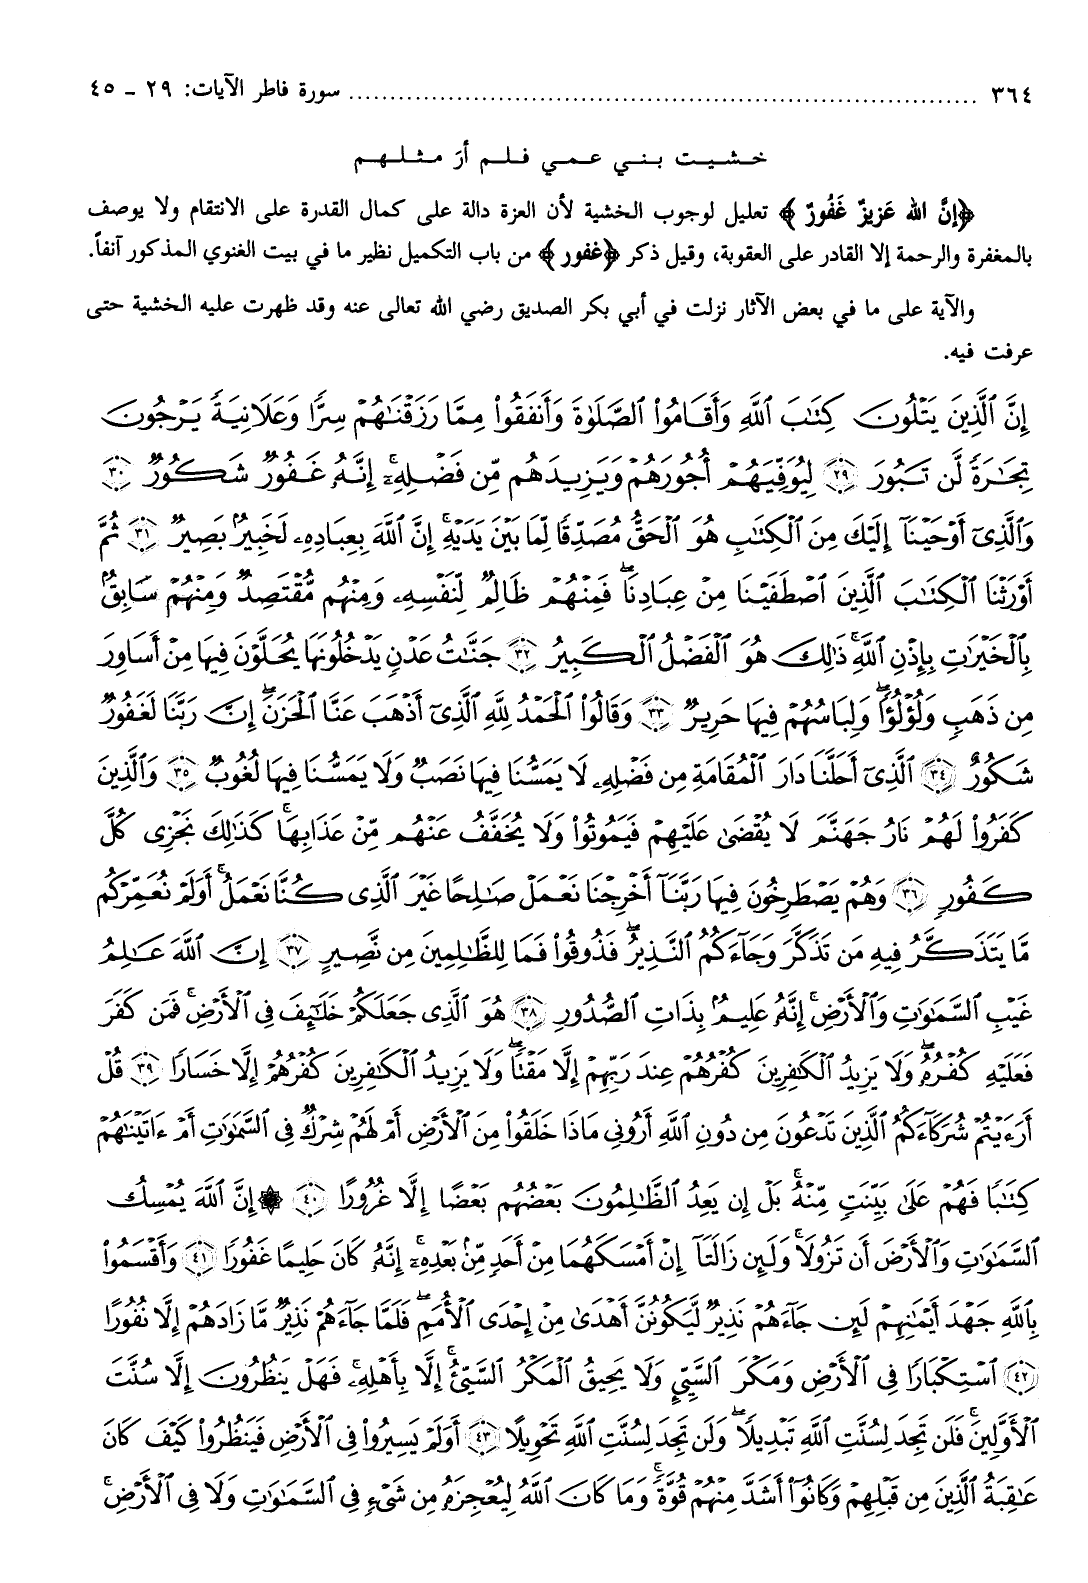 ٣٦٤ ........................................................................ سورة فاطر الآيات: ٢٩ ـ ٤٥
خشيت بني عمي فلم أرَ مثلهم
﴿إنَّ الله عَزيزٌ غَفُورٌ﴾ تعليل لوجوب الخشية لأن العزة دالة على كمال القدرة على الانتقام ولا يوصف
بالمغفرة والرحمة إلا القادر على العقوبة، وقيل ذكر ﴿غفور﴾ من باب التكميل نظير ما في بيت الغنوي المذكور آنفاً.
والآية على ما في بعض الآثار نزلت في أبي بكر الصديق رضي الله تعالى عنه وقد ظهرت عليه الخشية حتى
عرفت فيه.
إِنَّ ٱلَّذِينَ يَتْلُونَ كِتَٰبَ ٱللَّهِ وَأَقَامُوا۟ ٱلصَّلَوٰةَ وَأَنفَقُوا۟ مِمَّا رَزَقْنَٰهُمْ سِرًّا وَعَلَانِيَةً يَرْجُونَ
تِجَٰرَةً لَّن تَبُورَ ﴿٢٩﴾ لِيُوَفِّيَهُمْ أُجُورَهُمْ وَيَزِيدَهُم مِّن فَضْلِهِۦٓ ۚ إِنَّهُۥ غَفُورٌ شَكُورٌ ﴿٣٠﴾
وَٱلَّذِىٓ أَوْحَيْنَآ إِلَيْكَ مِنَ ٱلْكِتَٰبِ هُوَ ٱلْحَقُّ مُصَدِّقًا لِّمَا بَيْنَ يَدَيْهِ ۗ إِنَّ ٱللَّهَ بِعِبَادِهِۦ لَخَبِيرٌۢ بَصِيرٌ ﴿٣١﴾ ثُمَّ
أَوْرَثْنَا ٱلْكِتَٰبَ ٱلَّذِينَ ٱصْطَفَيْنَا مِنْ عِبَادِنَا ۖ فَمِنْهُمْ ظَالِمٌ لِّنَفْسِهِۦ وَمِنْهُم مُّقْتَصِدٌ وَمِنْهُمْ سَابِقٌۢ
بِٱلْخَيْرَٰتِ بِإِذْنِ ٱللَّهِ ۚ ذَٰلِكَ هُوَ ٱلْفَضْلُ ٱلْكَبِيرُ ﴿٣٢﴾ جَنَّٰتُ عَدْنٍ يَدْخُلُونَهَا يُحَلَّوْنَ فِيهَا مِنْ أَسَاوِرَ
مِن ذَهَبٍ وَلُؤْلُؤًا ۖ وَلِبَاسُهُمْ فِيهَا حَرِيرٌ ﴿٣٣﴾ وَقَالُوا۟ ٱلْحَمْدُ لِلَّهِ ٱلَّذِىٓ أَذْهَبَ عَنَّا ٱلْحَزَنَ ۖ إِنَّ رَبَّنَا لَغَفُورٌ
شَكُورٌ ﴿٣٤﴾ ٱلَّذِىٓ أَحَلَّنَا دَارَ ٱلْمُقَامَةِ مِن فَضْلِهِۦ لَا يَمَسُّنَا فِيهَا نَصَبٌ وَلَا يَمَسُّنَا فِيهَا لُغُوبٌ ﴿٣٥﴾ وَٱلَّذِينَ
كَفَرُوا۟ لَهُمْ نَارُ جَهَنَّمَ لَا يُقْضَىٰ عَلَيْهِمْ فَيَمُوتُوا۟ وَلَا يُخَفَّفُ عَنْهُم مِّنْ عَذَابِهَا ۚ كَذَٰلِكَ نَجْزِى كُلَّ
كَفُورٍ ﴿٣٦﴾ وَهُمْ يَصْطَرِخُونَ فِيهَا رَبَّنَآ أَخْرِجْنَا نَعْمَلْ صَٰلِحًا غَيْرَ ٱلَّذِى كُنَّا نَعْمَلُ ۚ أَوَلَمْ نُعَمِّرْكُم
مَّا يَتَذَكَّرُ فِيهِ مَن تَذَكَّرَ وَجَآءَكُمُ ٱلنَّذِيرُ ۖ فَذُوقُوا۟ فَمَا لِلظَّٰلِمِينَ مِن نَّصِيرٍ ﴿٣٧﴾ إِنَّ ٱللَّهَ عَٰلِمُ
غَيْبِ ٱلسَّمَٰوَٰتِ وَٱلْأَرْضِ ۚ إِنَّهُۥ عَلِيمٌۢ بِذَاتِ ٱلصُّدُورِ ﴿٣٨﴾ هُوَ ٱلَّذِى جَعَلَكُمْ خَلَٰٓئِفَ فِى ٱلْأَرْضِ ۚ فَمَن كَفَرَ
فَعَلَيْهِ كُفْرُهُۥ ۖ وَلَا يَزِيدُ ٱلْكَٰفِرِينَ كُفْرُهُمْ عِندَ رَبِّهِمْ إِلَّا مَقْتًا ۖ وَلَا يَزِيدُ ٱلْكَٰفِرِينَ كُفْرُهُمْ إِلَّا خَسَارًا ﴿٣٩﴾ قُلْ
أَرَءَيْتُمْ شُرَكَآءَكُمُ ٱلَّذِينَ تَدْعُونَ مِن دُونِ ٱللَّهِ أَرُونِى مَاذَا خَلَقُوا۟ مِنَ ٱلْأَرْضِ أَمْ لَهُمْ شِرْكٌ فِى ٱلسَّمَٰوَٰتِ أَمْ ءَاتَيْنَٰهُمْ
كِتَٰبًا فَهُمْ عَلَىٰ بَيِّنَتٍ مِّنْهُ ۚ بَلْ إِن يَعِدُ ٱلظَّٰلِمُونَ بَعْضُهُم بَعْضًا إِلَّا غُرُورًا ﴿٤٠﴾ ۞ إِنَّ ٱللَّهَ يُمْسِكُ
ٱلسَّمَٰوَٰتِ وَٱلْأَرْضَ أَن تَزُولَا ۚ وَلَئِن زَالَتَآ إِنْ أَمْسَكَهُمَا مِنْ أَحَدٍ مِّنۢ بَعْدِهِۦٓ ۚ إِنَّهُۥ كَانَ حَلِيمًا غَفُورًا ﴿٤١﴾ وَأَقْسَمُوا۟
بِٱللَّهِ جَهْدَ أَيْمَٰنِهِمْ لَئِن جَآءَهُمْ نَذِيرٌ لَّيَكُونُنَّ أَهْدَىٰ مِنْ إِحْدَى ٱلْأُمَمِ ۖ فَلَمَّا جَآءَهُمْ نَذِيرٌ مَّا زَادَهُمْ إِلَّا نُفُورًا
﴿٤٢﴾ ٱسْتِكْبَارًا فِى ٱلْأَرْضِ وَمَكْرَ ٱلسَّيِّئِ ۚ وَلَا يَحِيقُ ٱلْمَكْرُ ٱلسَّيِّئُ إِلَّا بِأَهْلِهِۦ ۚ فَهَلْ يَنظُرُونَ إِلَّا سُنَّتَ
ٱلْأَوَّلِينَ ۚ فَلَن تَجِدَ لِسُنَّتِ ٱللَّهِ تَبْدِيلًا ۖ وَلَن تَجِدَ لِسُنَّتِ ٱللَّهِ تَحْوِيلًا ﴿٤٣﴾ أَوَلَمْ يَسِيرُوا۟ فِى ٱلْأَرْضِ فَيَنظُرُوا۟ كَيْفَ كَانَ
عَٰقِبَةُ ٱلَّذِينَ مِن قَبْلِهِمْ وَكَانُوٓا۟ أَشَدَّ مِنْهُمْ قُوَّةً ۚ وَمَا كَانَ ٱللَّهُ لِيُعْجِزَهُۥ مِن شَىْءٍ فِى ٱلسَّمَٰوَٰتِ وَلَا فِى ٱلْأَرْضِ ۚ